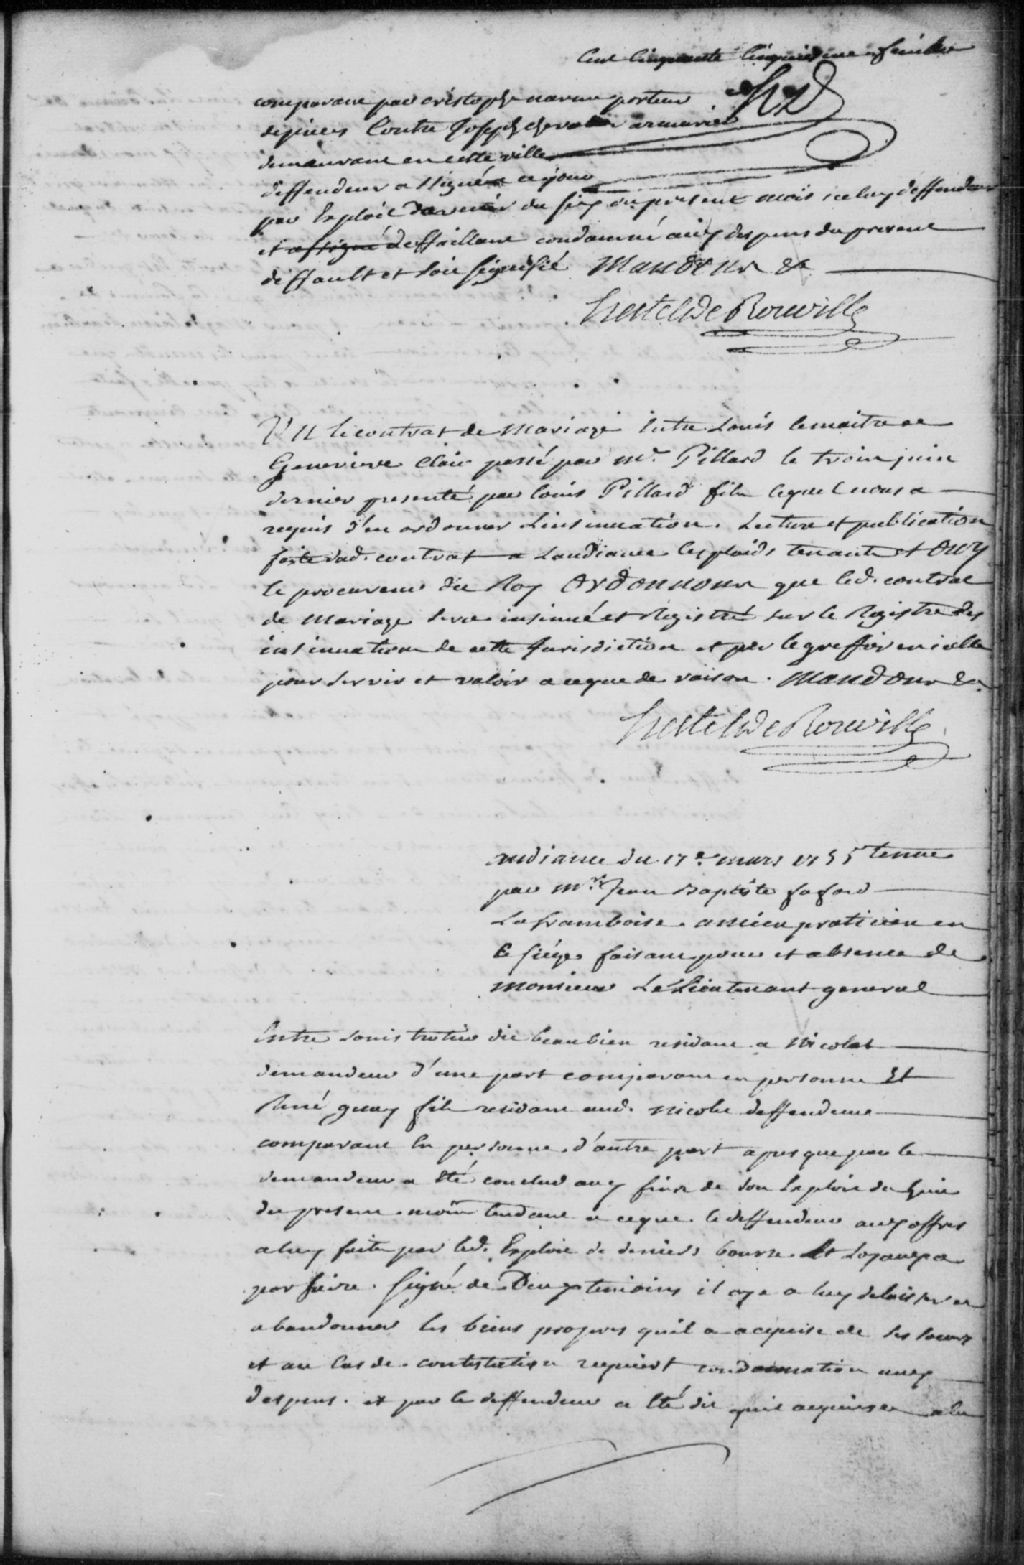 Cent Cinquante Cinquiesme feuillet
comparant par cristophe porteur
de pieces Contre Joseph chevalier armurier
demeurant en cette ville
deffendeur assigné a ce jour
par Exploit du six du present mois iceluy deffendeur
et assigné deffaillant condamné aux despens du present
deffault et soit signiffié Mandons &
Hertel de Rouville
VU le contrat de Mariage Entre Louis lemaitre et
Genevieve Clair passé par Me. Pillard le trois juin
dernier presenté par louis Pillard fils lequel nous a
requis d'en ordonner L'insinuation. Lecture et publication
faite dud. contrat a Laudiance les plaids tenants & Ouy
le procureur du Roy Ordonnons que led. contrat
de Mariage sera insinué et Registré sur le Registre des
insinuations de cette Jurisdiction et par le greffier en icelle
pour servir et valoir a ce que de raison. Mandons &a
Hertel de Rouville
audiance du 17e. mars 1755 tenue
par Mre Jean Baptiste fafard
Laframboise. ancien praticien en
ce siège faisant pour et absence de
Monsieur Le Lieutenant general
Entre Louis trotier dit beaubien residant a Nicolet
demandeur d'une part comparant en personne Et
René fils residant aud. Nicolet deffendeur
comparant En personne. d'autre part apres que par le
demandeur a Eté conclud aux fins de son Exploit du
du present mois tendant a ce que le deffendeur aux offres
a luy faite par led. Exploit de deniers bourse. Et Loyaux a
parfaire. Signé de Deux temoins il aye a luy delaisser et
abandonner les biens propres quil a acquise de ses soeurs
et au Cas de contestation requiert condamnation aux
despens. et par le deffendeur a Eté dit